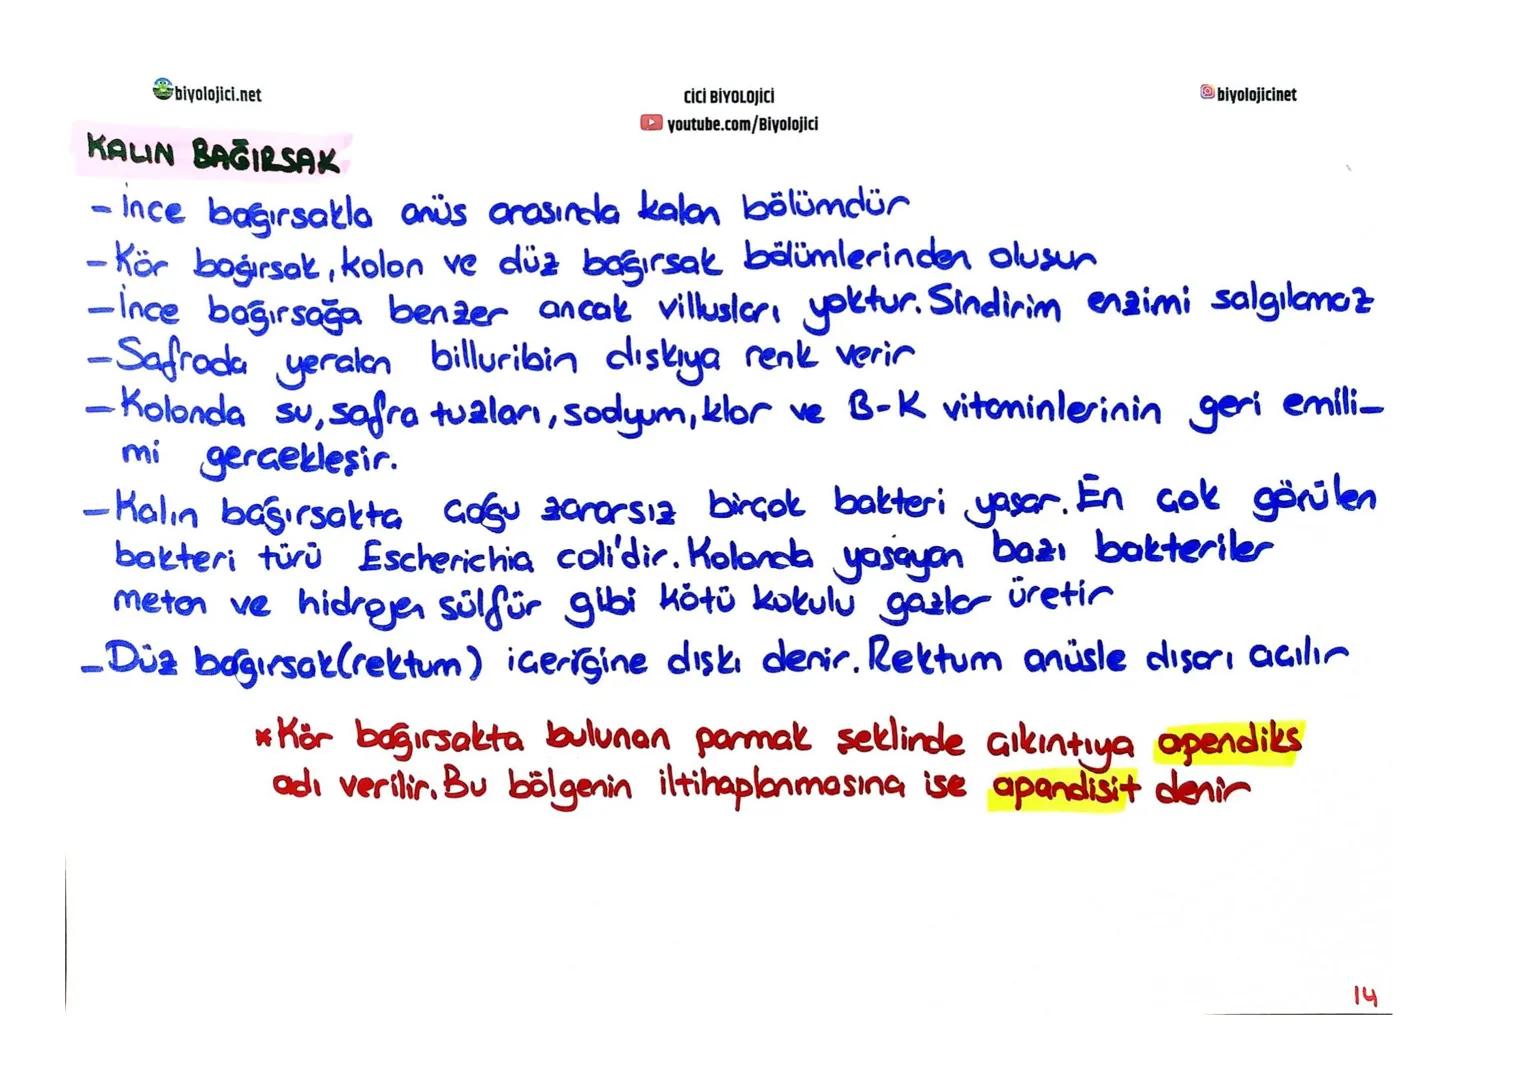 biyolojici.net
CİCİ BİYOLOJİCİ
biyolojicinet
youtube.com/Biyolojici
KALIN BAĞIRSAK
- İnce bağırsakla anüs arasında kalan bölümdür
- Kör bağırsak, kolon ve düz bağırsak bölümlerinden oluşur
- İnce bağırsağa benzer ancak villusları yoktur. Sindirim enzimi salgılamaz
- Safrada yeralan billuribin dışkıya renk verir
- Kolonda su, safra tuzları, sodyum, klor ve B-K vitaminlerinin geri emili-
mi gerçekleşir.
- Kalın bağırsakta çoğu zararsız birçok bakteri yaşar. En çok görülen
bakteri türü Escherichia coli'dir. Kolonda yaşayan bazı bakteriler
metan ve hidrojen sülfür gibi kötü kokulu gazlar üretir
- Düz bağırsak(rektum) içeriğine dışkı denir. Rektum anüsle dışarı açılır
* Kör bağırsakta bulunan parmak şeklinde çıkıntıya apendiks
adı verilir. Bu bölgenin iltihaplanmasına ise apandisit denir
14